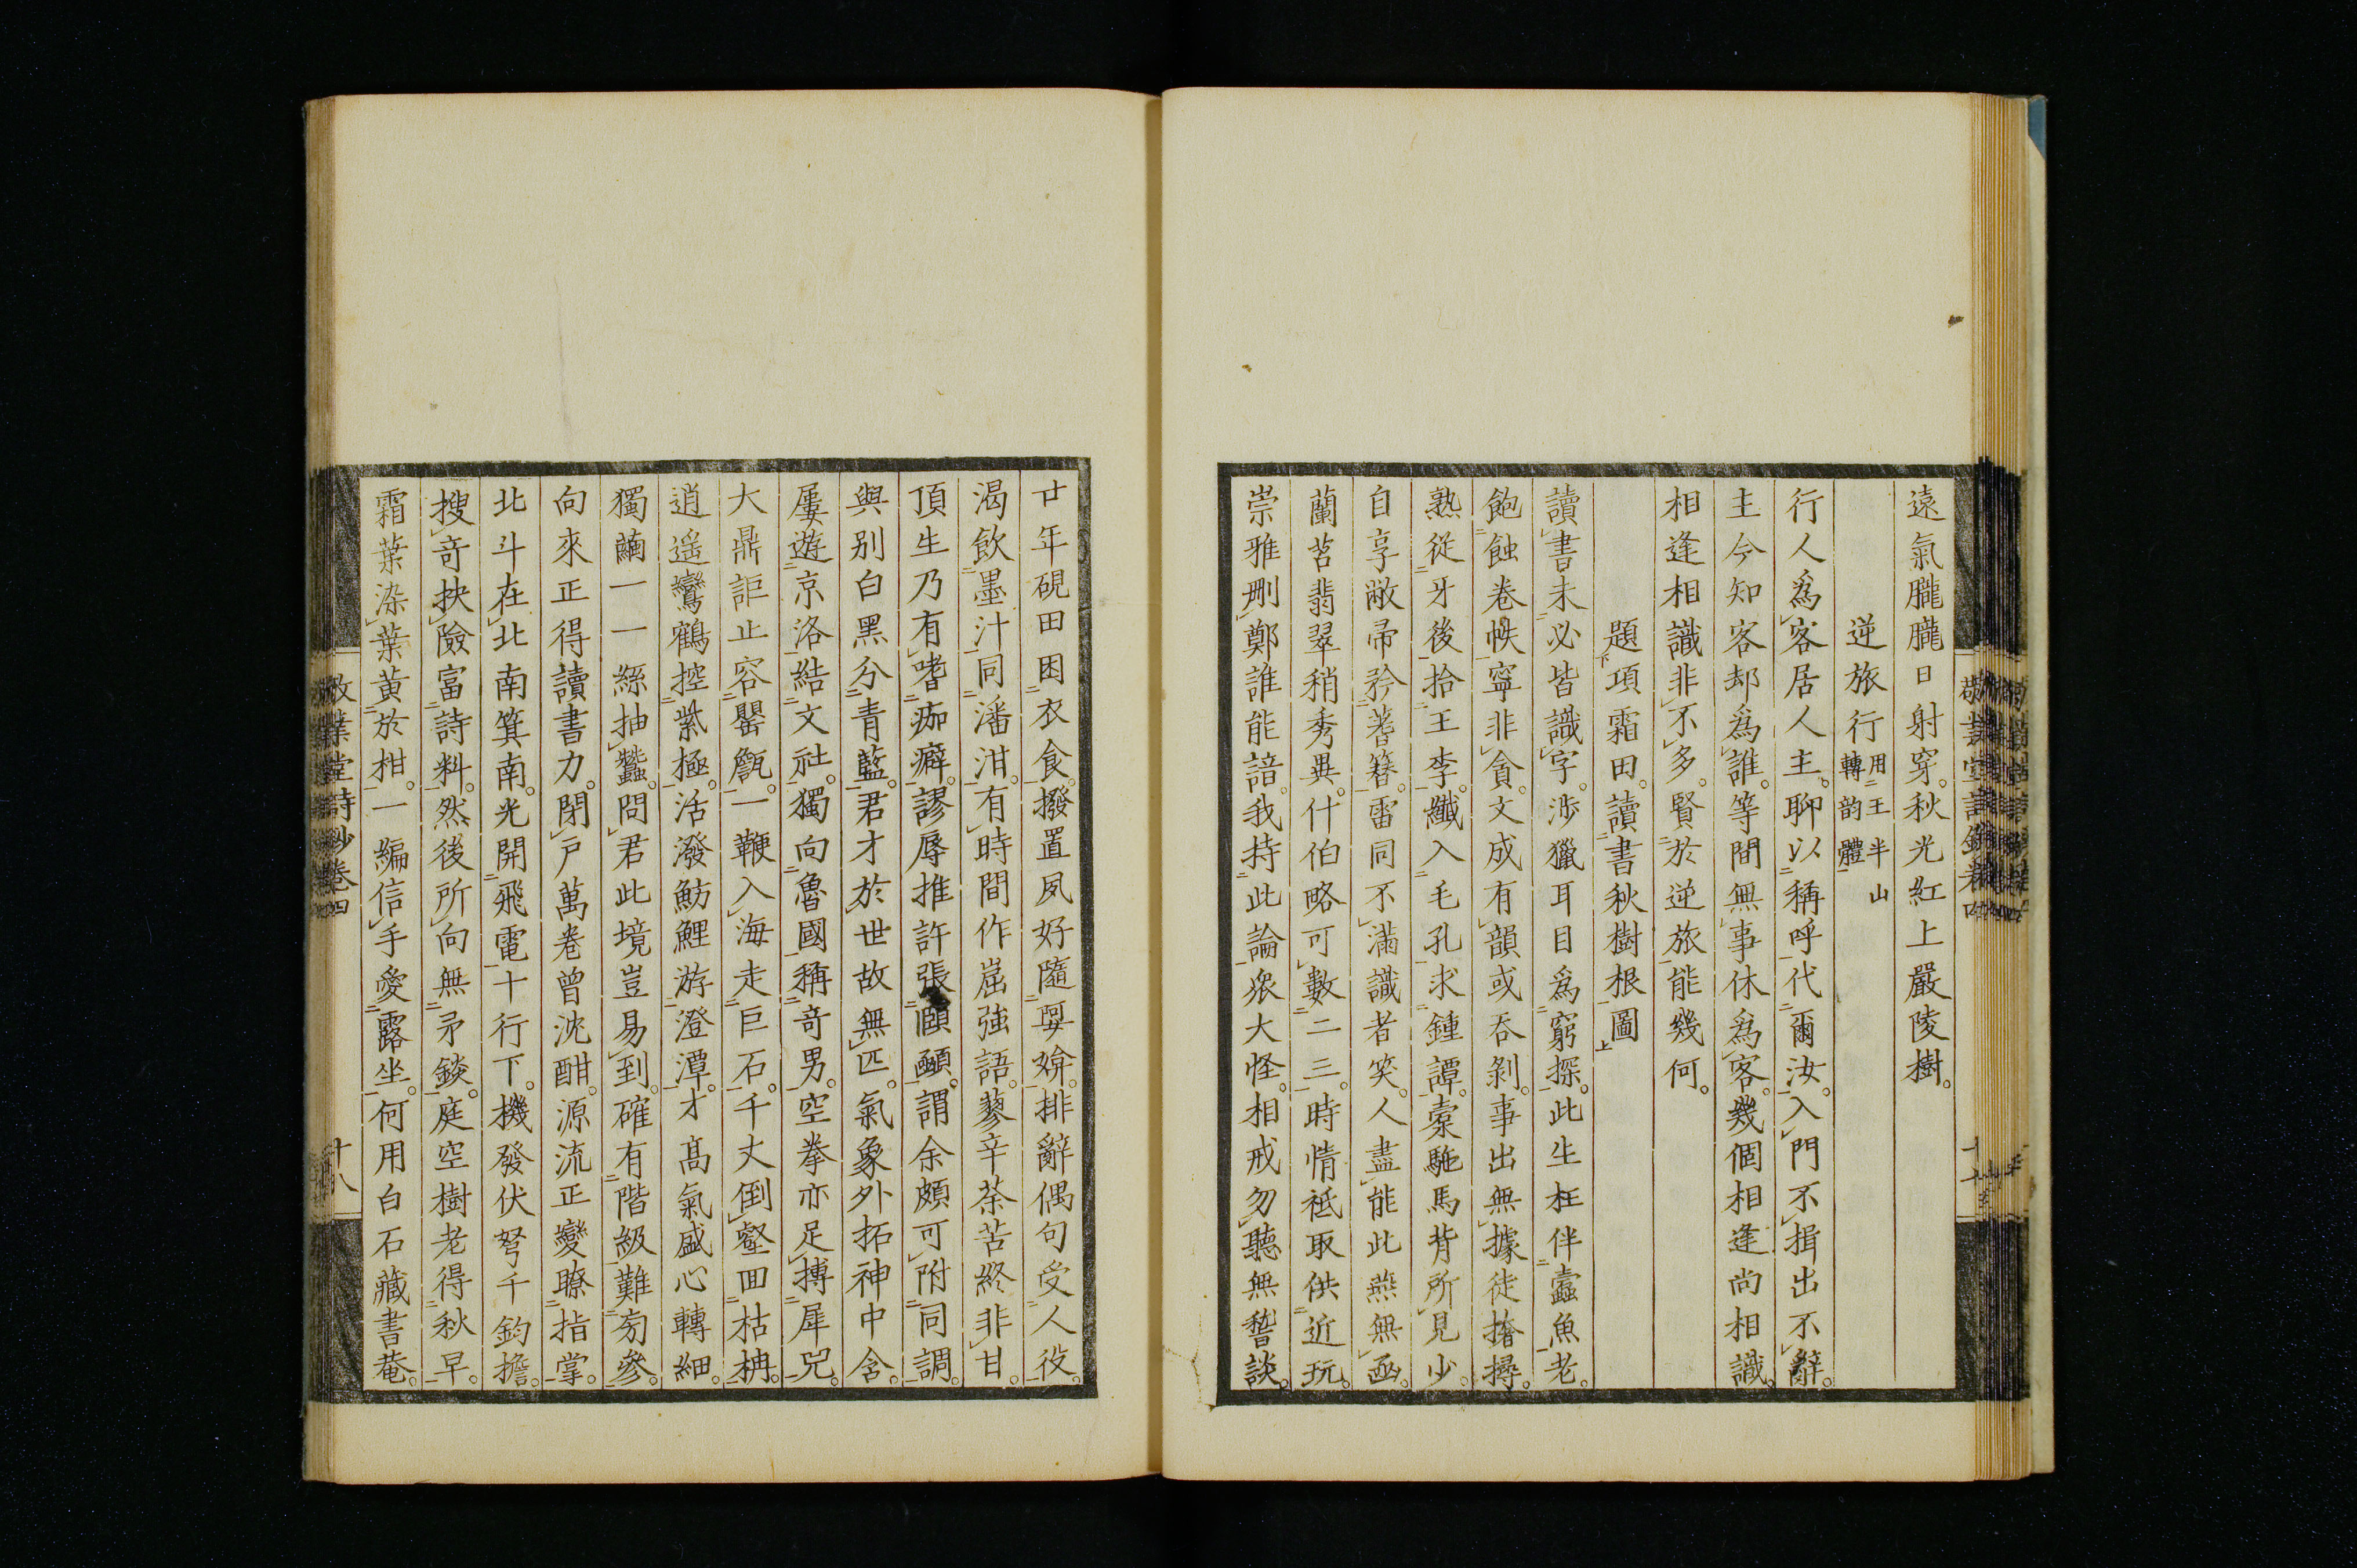 遠氣朧朧日射穿。秋光紅上嚴陵樹。
逆旅行用王半山轉韵體
行人爲客居人主。聊以稱呼代爾汝。入門不揖出不辭。
主今知客却爲誰。等閒無事休爲客。幾個相逢尚相識。
相逢相識非不多。賢於逆旅能幾何。
題項霜田。讀書秋樹根圖
讀書未必皆識字。涉獵耳目爲窮探。此生枉伴蠹魚老。
飽蝕卷帙寧非貪。文成有韻或吞剝。事出無據徒撦撏。
熟從牙後拾王李。纖入毛孔求鍾譚。橐駞馬背所見少。
自享敝帚矜蓍簪。雷同不滿識者笑。人盡能此燕無函。
蘭苕翡翠稍秀異。什伯略可數二三。時情祗取供近玩。
崇雅刪鄭誰能諳。我持此論眾大怪。相戒勿聽無訾談。
廿年硯田困衣食。撥置夙好隨媕娿。排辭偶句受人役。
渴飲墨汁同潘泔。有時間作崛強語。蓼辛荼苦終非甘。
頂生乃有嗜痂癖。謬辱推許張頤顄。謂余頗可附同調。
與別白黑分青藍。君才於世故無匹。氣象外拓神中含。
屢遊京洛結文社。獨向魯國稱奇男。空拳亦足搏犀兕。
大鼎詎止容罌甔。一鞭入海走巨石。千丈倒壑回枯柟。
逍遥鸞鶴控紫極。活潑魴鯉游澄潭。才高氣盛心轉細。
獨繭一一絲抽蠶。問君此境豈易到。確有階級難旁參。
向來正得讀書力。閉戶萬卷曾沈酣。源流正變瞭指掌。
北斗在北南箕南。光開飛電十行下。機發伏弩千鈞擔。
搜奇抉險富詩料。然後所向無矛錟。庭空樹老得秋早。
霜葉染葉黃於柑。一編信手愛露坐。何用白石藏書菴。
敬業堂詩鈔卷四
十八